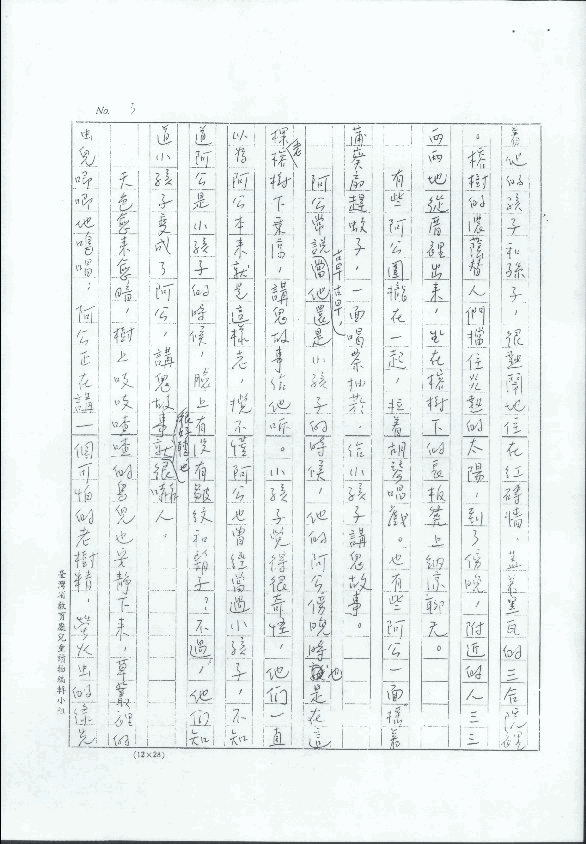 No. 3
着他的孩子和孫子，很熱鬧地住在紅磚牆，蓋着黑瓦的三合院裡
。榕樹的濃蔭替人們擋住炎熱的太陽，到了傍晚，附近的人三三
兩兩地從厝裡出來，坐在榕樹下的長板凳上納涼聊天。
有些阿公圍攏在一起，拉着胡琴唱戲。也有些阿公一面搖着
蒲葵扇趕蚊子，一面喝茶抽菸，給小孩子講鬼故事。
阿公常說古早古早，當他還是小孩子的時候，他的阿公傍晚時也是在這
棵老榕樹下乘涼，講鬼故事給他聽。小孩子覺得很奇怪，他們一直
以為阿公本來就是這樣老，搞不懂阿公也曾經當過小孩子，不知
道阿公是小孩子的時候，臉上有沒有皺紋和鬍子？不過，他們知
道小孩子變成了阿公，講鬼故事就很嚇人。
天色愈來愈暗，樹上吱吱喳喳的鳥兒也安靜下來，草叢裡的
虫兒唧唧地鳴唱；阿公正在講一個可怕的老樹精，螢火虫的綠光
臺灣省教育廳兒童讀物編輯小組
(12×28)